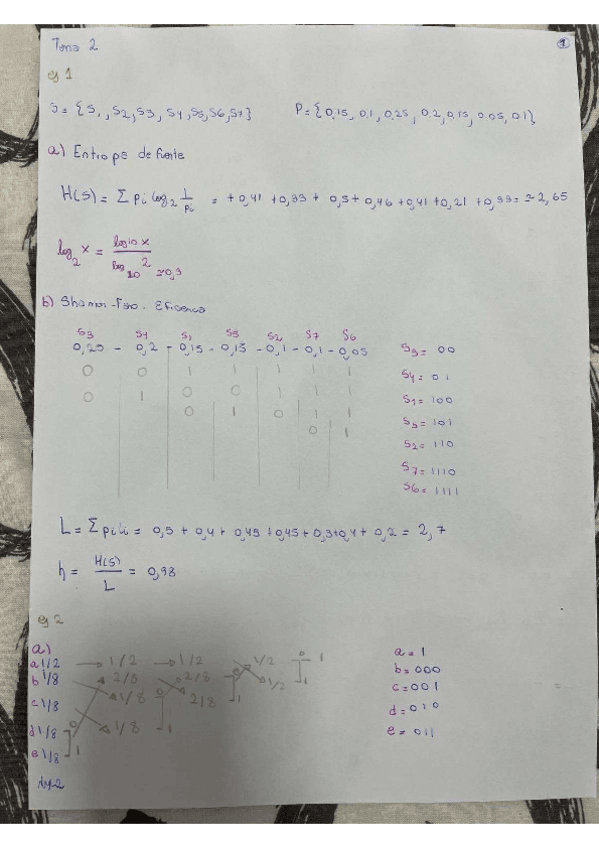 Tema 2
1
ej 1
S = {S1, S2, S3, S4, S5, S6, S7} P = {0,15, 0,1, 0,25, 0,2, 0,15, 0,05, 0,1}
a) Entropía de fuente
H(S) = Σ pi log2 1/pi = + 0,41 + 0,33 + 0,5 + 0,46 + 0,41 + 0,21 + 0,33 = ≈ 2,65
log2 x = log10 x / log10 2 ≈ 0,3
b) Shannon-Fano. Eficiencia
S3 S4 S1 S5 S2 S7 S6
0,25 - 0,2 - 0,15 - 0,15 - 0,1 - 0,1 - 0,05
0 0 1 1 1 1 1
0 1 0 0 1 1 1
0 1 0 1 1
0 1
S3 = 00
S4 = 01
S1 = 100
S5 = 101
S2 = 110
S7 = 1110
S6 = 1111
L = Σ pi li = 0,5 + 0,4 + 0,45 + 0,45 + 0,3 + 0,4 + 0,2 = 2,7
h = H(S) / L = 0,98
ej 2
a)
a 1/2 1/2 1/2 1/2 0 1
b 1/8 2/8 2/8 0 1/2 1
c 1/8 1/8 0 2/8 1
d 1/8 0 1/8 1
e 1/8 1
a = 1
b = 000
c = 001
d = 010
e = 011